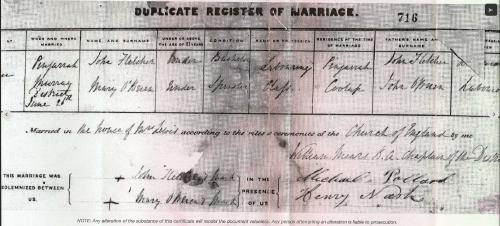 DUPLICATE REGISTER OF MARRIAGE.
716
WHEN AND WHERE MARRIED NAME AND SURNAME UNDER OR ABOVE THE AGE OF 21 YEARS CONDITION RANK OR PROFESSION RESIDENCE AT THE TIME OF MARRIAGE FATHER'S NAME AND SURNAME
Pinjarrah John Fletcher Under Bachelor Labouring Pinjarrah John Fletcher
Murray Mary O'Brien Under Spinster Class Coolup John O'Brien
District
June 26th
Married in the house of Mrs Lewis according to the rites & ceremonies of the Church of England by me
William Mears B.A. Chaplain of the
THIS MARRIAGE WAS SOLEMNIZED BETWEEN US.
+ John Fletcher's mark
+ Mary O'Brien's mark
IN THE PRESENCE OF US
Michael Pollard
Henry Nash
NOTE: Any alteration of the substance of this certificate will render the document valueless. Any person attempting an alteration is liable to prosecution.